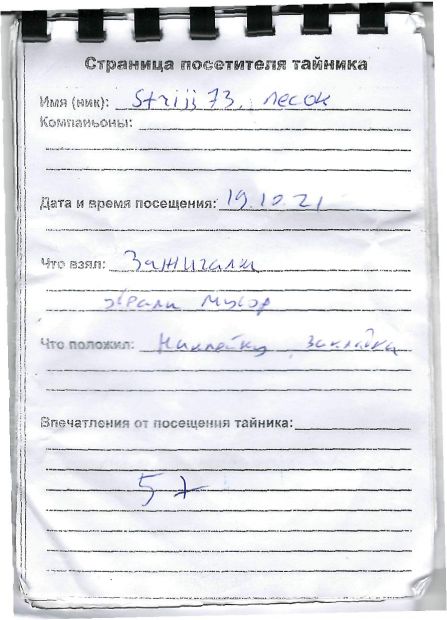 Страница посетителя тайника
Имя (ник): Strijj 73, лесок
Компаньоны:
Дата и время посещения: 19.10.21
Что взял: Зажигалки
убрали мусор
Что положил: Наклейку, закладка
Впечатления от посещения тайника:
5+